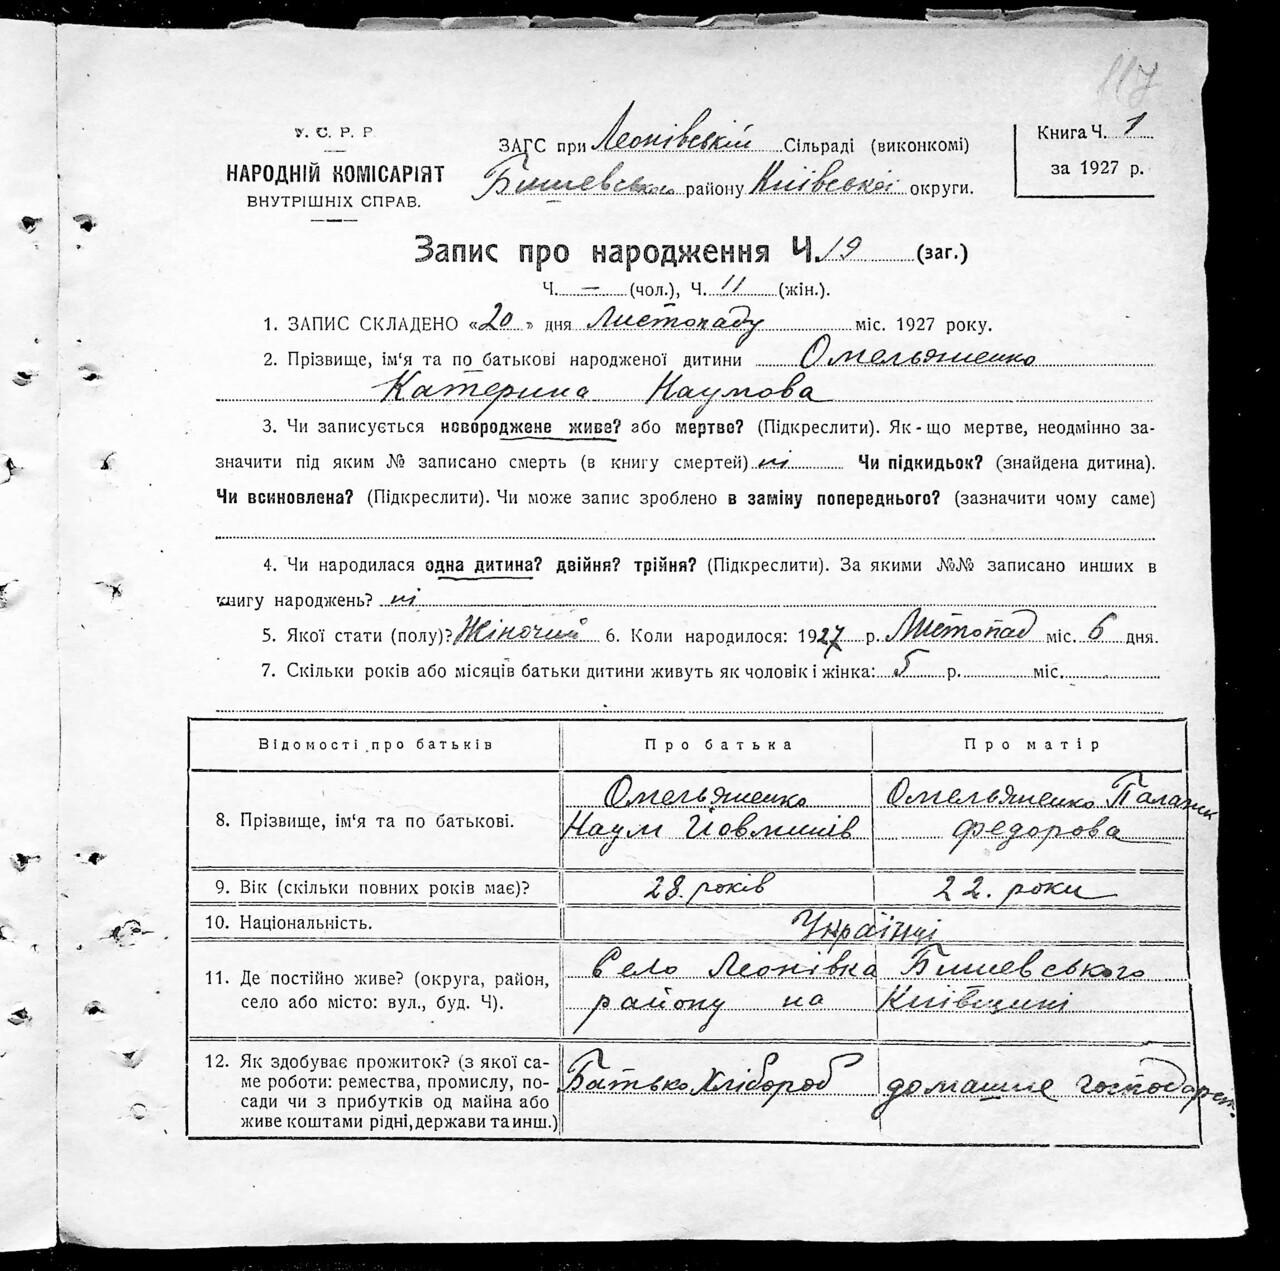 117
У. С. Р. Р
НАРОДНІЙ КОМІСАРІЯТ
ВНУТРІШНІХ СПРАВ.
ЗАГС при Леонівській Сільраді (виконкомі)
Бишевського району Київської округи.
Книга Ч. 1
за 1927 р.
Запис про народження Ч. 19 (заг.)
Ч. — (чол.), Ч. 11 (жін.).
1. ЗАПИС СКЛАДЕНО «20» дня Листопаду міс. 1927 року.
2. Прізвище, ім'я та по батькові народженої дитини Омельяненко
Катерина Наумова
3. Чи записується новороджене живе? або мертве? (Підкреслити). Як-що мертве, неодмінно за-
значити під яким № записано смерть (в книгу смертей) ні Чи підкидьок? (знайдена дитина).
Чи всиновлена? (Підкреслити). Чи може запис зроблено в заміну попереднього? (зазначити чому саме)
4. Чи народилася одна дитина? двійня? трійня? (Підкреслити). За якими №№ записано инших в
книгу народжень? ні
5. Якої стати (полу)? Жіночий 6. Коли народилося: 1927 р. Листопад міс. 6 дня.
7. Скільки років або місяців батьки дитини живуть як чоловік і жінка: 5 р. міс.
Відомості про батьків Про батька Про матір
8. Прізвище, ім'я та по батькові. Омельяненко Наум Омельяненко
Федорова
9. Вік (скільки повних років має)? 28 років 22. роки
10. Національність. Українці
11. Де постійно живе? (округа, район,
село або місто: вул., буд. Ч).
Село Леонівка Бишевського
району на Київщині
12. Як здобуває прожиток? (з якої са-
ме роботи: ремества, промислу, по-
сади чи з прибутків од майна або
живе коштами рідні, держави та инш.)
Батько Хлібороб домашнє